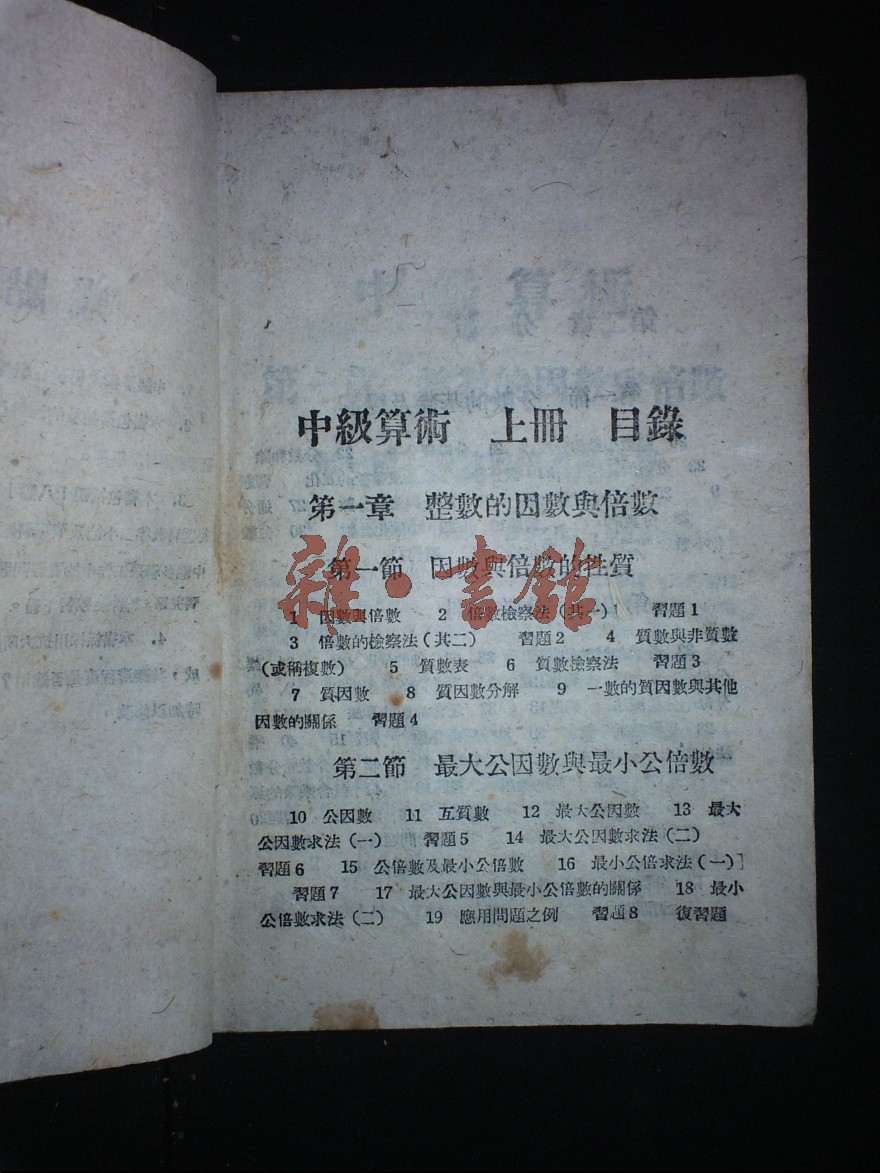 中級算術　上冊　目錄
第一章　整數的因數與倍數
第一節　因數與倍數的性質
雜·書館
1　因數與倍數　2　倍數檢察法（其一）　習題1
3　倍數的檢察法（其二）　習題2　4　質數與非質數
（或稱複數）　5　質數表　6　質數檢察法　習題3
7　質因數　8　質因數分解　9　一數的質因數與其他
因數的關係　習題4
第二節　最大公因數與最小公倍數
10　公因數　11　互質數　12　最大公因數　13　最大
公因數求法（一）　習題5　14　最大公因數求法（二）
習題6　15　公倍數及最小公倍數　16　最小公倍求法（一）
習題7　17　最大公因數與最小公倍數的關係　18　最小
公倍數求法（二）　19　應用問題之例　習題8　復習題